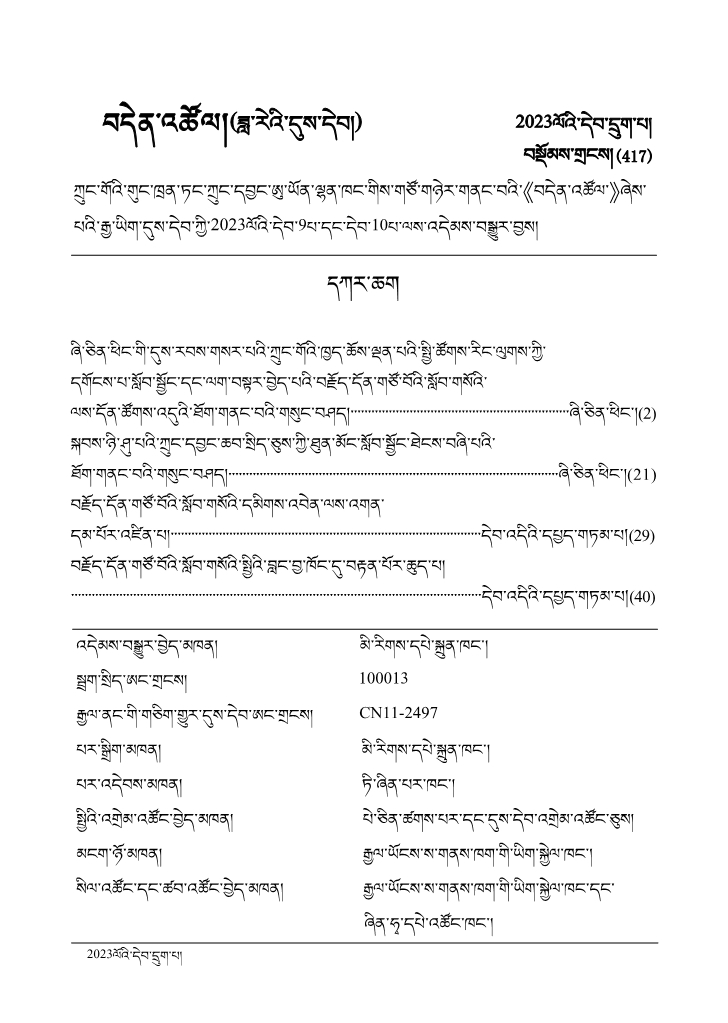 བདེན་འཚོལ།(ཟླ་རེའི་དུས་དེབ།)
2023ལོའི་དེབ་དྲུག་པ།
བསྡོམས་གྲངས།(417)
ཀྲུང་གོའི་གུང་ཁྲན་ཏང་ཀྲུང་དབྱང་ཨུ་ཡོན་ལྷན་ཁང་གིས་གཙོ་གཉེར་གནང་བའི་《བདེན་འཚོལ་》ཞེས་
པའི་རྒྱ་ཡིག་དུས་དེབ་ཀྱི་2023ལོའི་དེབ་9པ་དང་དེབ་10པ་ལས་འདེམས་བསྒྱུར་བྱས།
དཀར་ཆག
ཞི་ཅིན་ཕིང་གི་དུས་རབས་གསར་པའི་ཀྲུང་གོའི་ཁྱད་ཆོས་ལྡན་པའི་སྤྱི་ཚོགས་རིང་ལུགས་ཀྱི་
དགོངས་པ་སློབ་སྦྱོང་དང་ལག་བསྟར་བྱེད་པའི་བརྗོད་དོན་གཙོ་བོའི་སློབ་གསོའི་
ལས་དོན་ཚོགས་འདུའི་ཐོག་གནང་བའི་གསུང་བཤད།······ཞི་ཅིན་ཕིང་།(2)
སྐབས་ཉི་ཤུ་པའི་ཀྲུང་དབྱང་ཆབ་སྲིད་ཅུས་ཀྱི་ཐུན་མོང་སློབ་སྦྱོང་ཐེངས་བཞི་པའི་
ཐོག་གནང་བའི་གསུང་བཤད།······ཞི་ཅིན་ཕིང་།(21)
བརྗོད་དོན་གཙོ་བོའི་སློབ་གསོའི་དམིགས་འབེན་ལས་འགན་
དམ་པོར་འཛིན་པ།······དེབ་འདིའི་དཔྱད་གཏམ་པ།(29)
བརྗོད་དོན་གཙོ་བོའི་སློབ་གསོའི་སྤྱིའི་བླང་བྱ་ཁོང་དུ་བརྟན་པོར་ཆུད་པ།
······དེབ་འདིའི་དཔྱད་གཏམ་པ།(40)
འདེམས་བསྒྱུར་བྱེད་མཁན། མི་རིགས་དཔེ་སྐྲུན་ཁང་།
སྦྲག་སྲིད་ཨང་གྲངས། 100013
རྒྱལ་ནང་གི་གཅིག་གྱུར་དུས་དེབ་ཨང་གྲངས། CN11-2497
པར་སྒྲིག་མཁན། མི་རིགས་དཔེ་སྐྲུན་ཁང་།
པར་འདེབས་མཁན། ཏི་ཞིན་པར་ཁང་།
སྤྱིའི་འགྲེམ་འཚོང་བྱེད་མཁན། པེ་ཅིན་ཚགས་པར་དང་དུས་དེབ་འགྲེམ་འཚོང་ཅུས།
མངག་ཉོ་མཁན། རྒྱལ་ཡོངས་ས་གནས་ཁག་གི་ཡིག་སྐྱེལ་ཁང་།
སིལ་འཚོང་དང་ཚབ་འཚོང་བྱེད་མཁན། རྒྱལ་ཡོངས་ས་གནས་ཁག་གི་ཡིག་སྐྱེལ་ཁང་དང་
ཞིན་ཧྭ་དཔེ་འཚོང་ཁང་།
2023ལོའི་དེབ་དྲུག་པ།